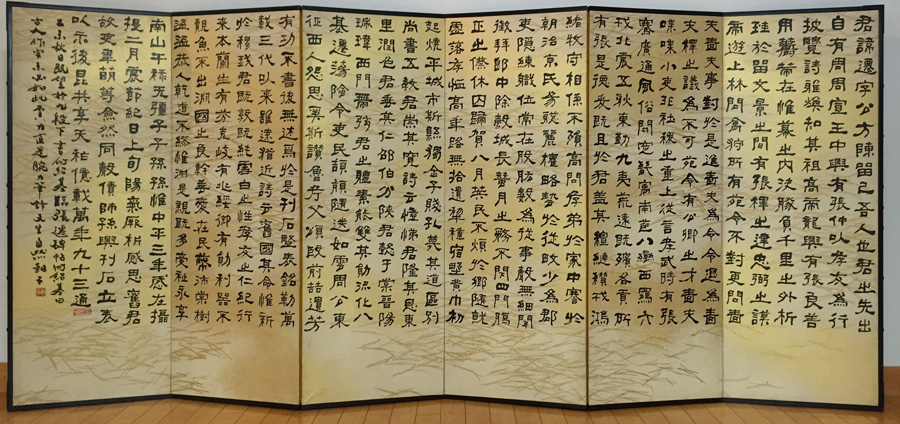 君諱遷字公方陳留己吾人也君之先出
自有周周宣王中興有張仲以孝友為行
披覽詩雅煥知其祖高帝龍興有張良善
用籌策在帷幕之內決勝負千里之外析
珪於留文景之間有張釋之建忠弼之謨
帝遊上林問禽狩所有苑令不對更問嗇
夫嗇夫事對於是進嗇夫為令令退為嗇
夫釋之議為不可苑令有公卿之才嗇夫
喋喋小吏非社稷之重上從言孝武時有張
騫廣通風俗開定畿寓南苞八蠻西羈六
戎北震五狄東勤九夷荒遠既殯各貢所
有張是德爰既且於君蓋其繵縺纘戎鴻
緒牧守相係不殞高問孝弟於家中謇於
朝治京氏易聰麗權略藝於從畋少為郡
吏隱練職位常在股肱數為從事聲無細聞
徵拜郎中除穀城長蠶月之務不閉四門臘
正之僚休囚歸賀八月算民不煩於鄉隨就
虛落存恤高年路無拾遺犁種宿野黃巾初
起燒平城市斯縣獨全子賤孔蔑其道區別
尚書五教君崇其寬詩云愷悌君隆其恩東
里潤色君垂其仁邵伯分陝君懿于棠晉陽
珮瑋西門帶弦君之體素能雙其勛流化八
基遷蕩陰令吏民頡頏隨送如雲周公東
征西人怨思奚斯讚魯考父頌殷前喆遺芳
有功不書後無述焉於是刊石豎表銘勒萬
載三代以來雖遠猶近詩云舊國其命惟新
於穆我君既敦既純雪白之性孝友之仁紀行
來本蘭生有芬克岐有兆綏御有勛利器不
覿魚不出淵國之良幹垂愛在民蔽沛棠樹
溫溫恭人乾道不繆惟淑是親既多受祉永享
南山干祿無疆子子孫孫惟中平三年歲在攝
提二月震節紀日上旬陽氣厥析感思舊君
故吏韋萌等僉然同聲賃師孫興刊石立表
以示後昆共享天祚億載萬年九十三